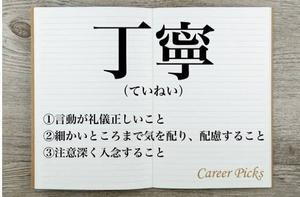 丁寧
(ていねい)
①言動が礼儀正しいこと
②細かいところまで気を配り、配慮すること
③注意深く入念すること
Career Picks